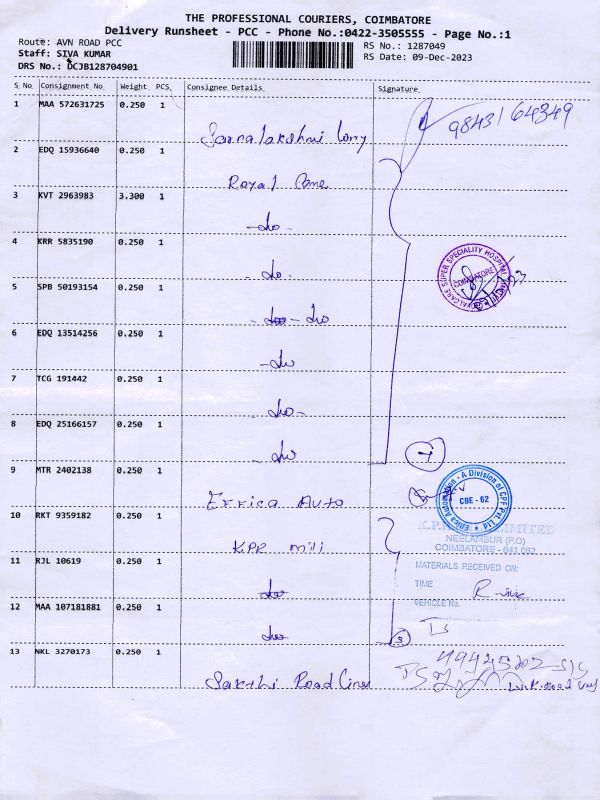 THE PROFESSIONAL COURIERS, COIMBATORE
Delivery Runsheet - PCC - Phone No.:0422-3505555 - Page No.:1
Route: AVN ROAD PCC
RS No.: 1287049
Staff: SIVA KUMAR
RS Date: 09-Dec-2023
DRS No.: DCJB128704901
S No Consignment No Weight PCS. Consignee Details Signature
1 MAA 572631725 0.250 1
9843164349
2 EDQ 15936640 0.250 1
Royal Care
3 KVT 2963983 3.300 1
-do-
4 KRR 5835190 0.250 1
-do-
SUPER SPECIALITY HOSPITAL
COIMBATORE
5 SPB 50193154 0.250 1
-do- do
6 EDQ 13514256 0.250 1
-do
7 TCG 191442 0.250 1
-do-
8 EDQ 25166157 0.250 1
-do
7
9 MTR 2402138 0.250 1
Effica Auto
Effica Automation - A Division of CPF Pvt. Ltd
CBE - 62
10 RKT 9359182 0.250 1
K.P.R. LIMITED
NEELAMBUR (P.O)
COIMBATORE - 641 062
KPR mill
11 RJL 10619 0.250 1
MATERIALS RECEIVED ON:
TIME
do
VEHICLE No.
12 MAA 107181881 0.250 1
do
3
13 NKL 3270173 0.250 1
Sakthi Road Lines